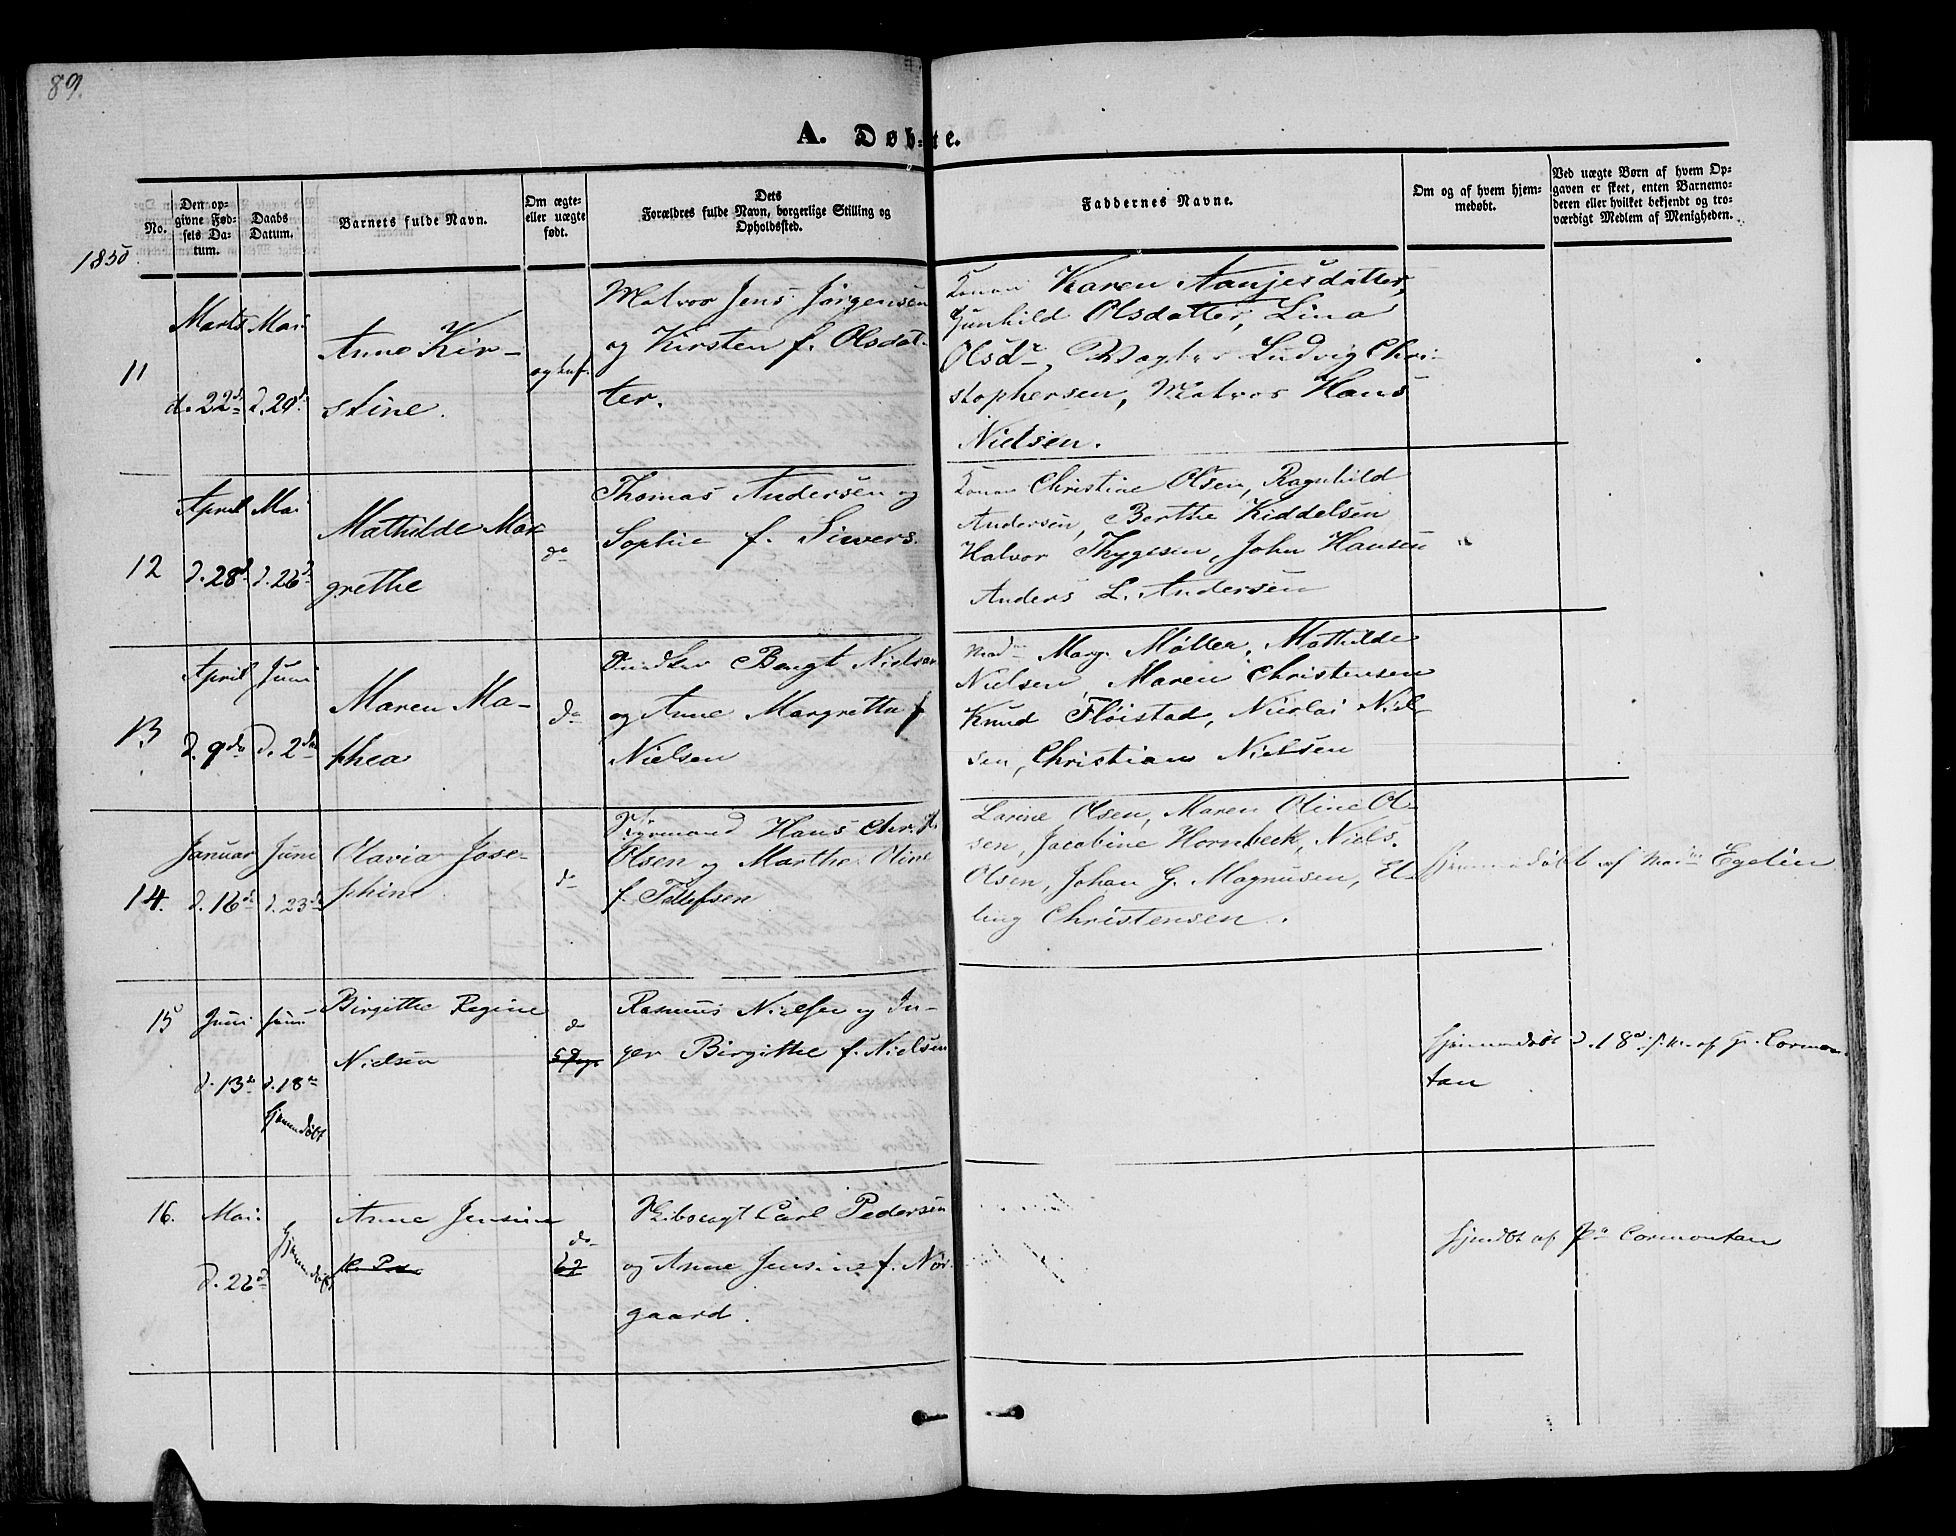 89.
A. Døb-te.
No.
Den op-
givne Fød-
sels Da-
tum.
Daabs
Datum.
Barnets fulde Navn.
Om ægte-
eller uægte
født.
Dets
Forældres fulde Navn, borgerlige Stilling og
Opholdssted.
Faddernes Navne.
Om og af hvem hjem-
medøbt.
Ved uægte Børn af hvem Op-
gaven er skeet, enten Barnemo-
deren eller hvilket bekjendt og tro-
værdigt Medlem af Menigheden.
1850
11
Marts
d. 22d
Mai
d. 29d
Anne Kir-
stine.
Matros Jens Jørgensen
og Kirsten f. Olsdat-
ter.
Konen Karen Aanjesdatter,
Gunhild Olsdatter, Lina
Olsdr, Ludvig Chri-
stophersen, Matros Hans
Nielsen.
12
April
d. 28d
Mai
d. 26d
Mathilde Mar
grethe
do
Thomas Andersen og
Sophie f. Siwers.
Konen Christine Olsen, Ragnhild
Andersen, Berthe Kiddelsen
Halvor Thygesen, John Hansen
Anders L. Andersen
13
April
d. 9de
Juni
d. 2den
Maren Ma-
thea
do
Bengt Nielsen
og Anne Margretha f
Nielsen
Mad Marg. Møller, Mathilde
Nielsen, Maren Christensen
Knud Fløistad, Nicolai Niel
sen, Christian Nielsen
14.
Januar
d. 16d
Juni
d. 23d
Olavia Jose-
phine
do
Styrmand Hans Chr.
Olsen og Marthe Oline
f. Tellefsen
Larine Olsen, Maren Oline Ol-
sen, Jacobine Hornbeck, Niels
Olsen, Johan G. Magnusen, El-
ling Christensen.
Hjemmedøbt af Madm Egelin
15
Juni
d. 13d
Juni
d. 18de
Hjemmedøbt
Birgitthe Regine
Nielsen
do
5 Dage
Rasmus Nielsen og In-
ger Birgitthe f. Nielsen
Hjemmedøbt d. 18d af Cormon-
tan
16.
Mai
d. 26d
Hjemmedøbt
Anne Jensine
do
Carl Pedersen
og Anne Jensine f. Nør-
gaard.
Hjemdbt af Cormontan